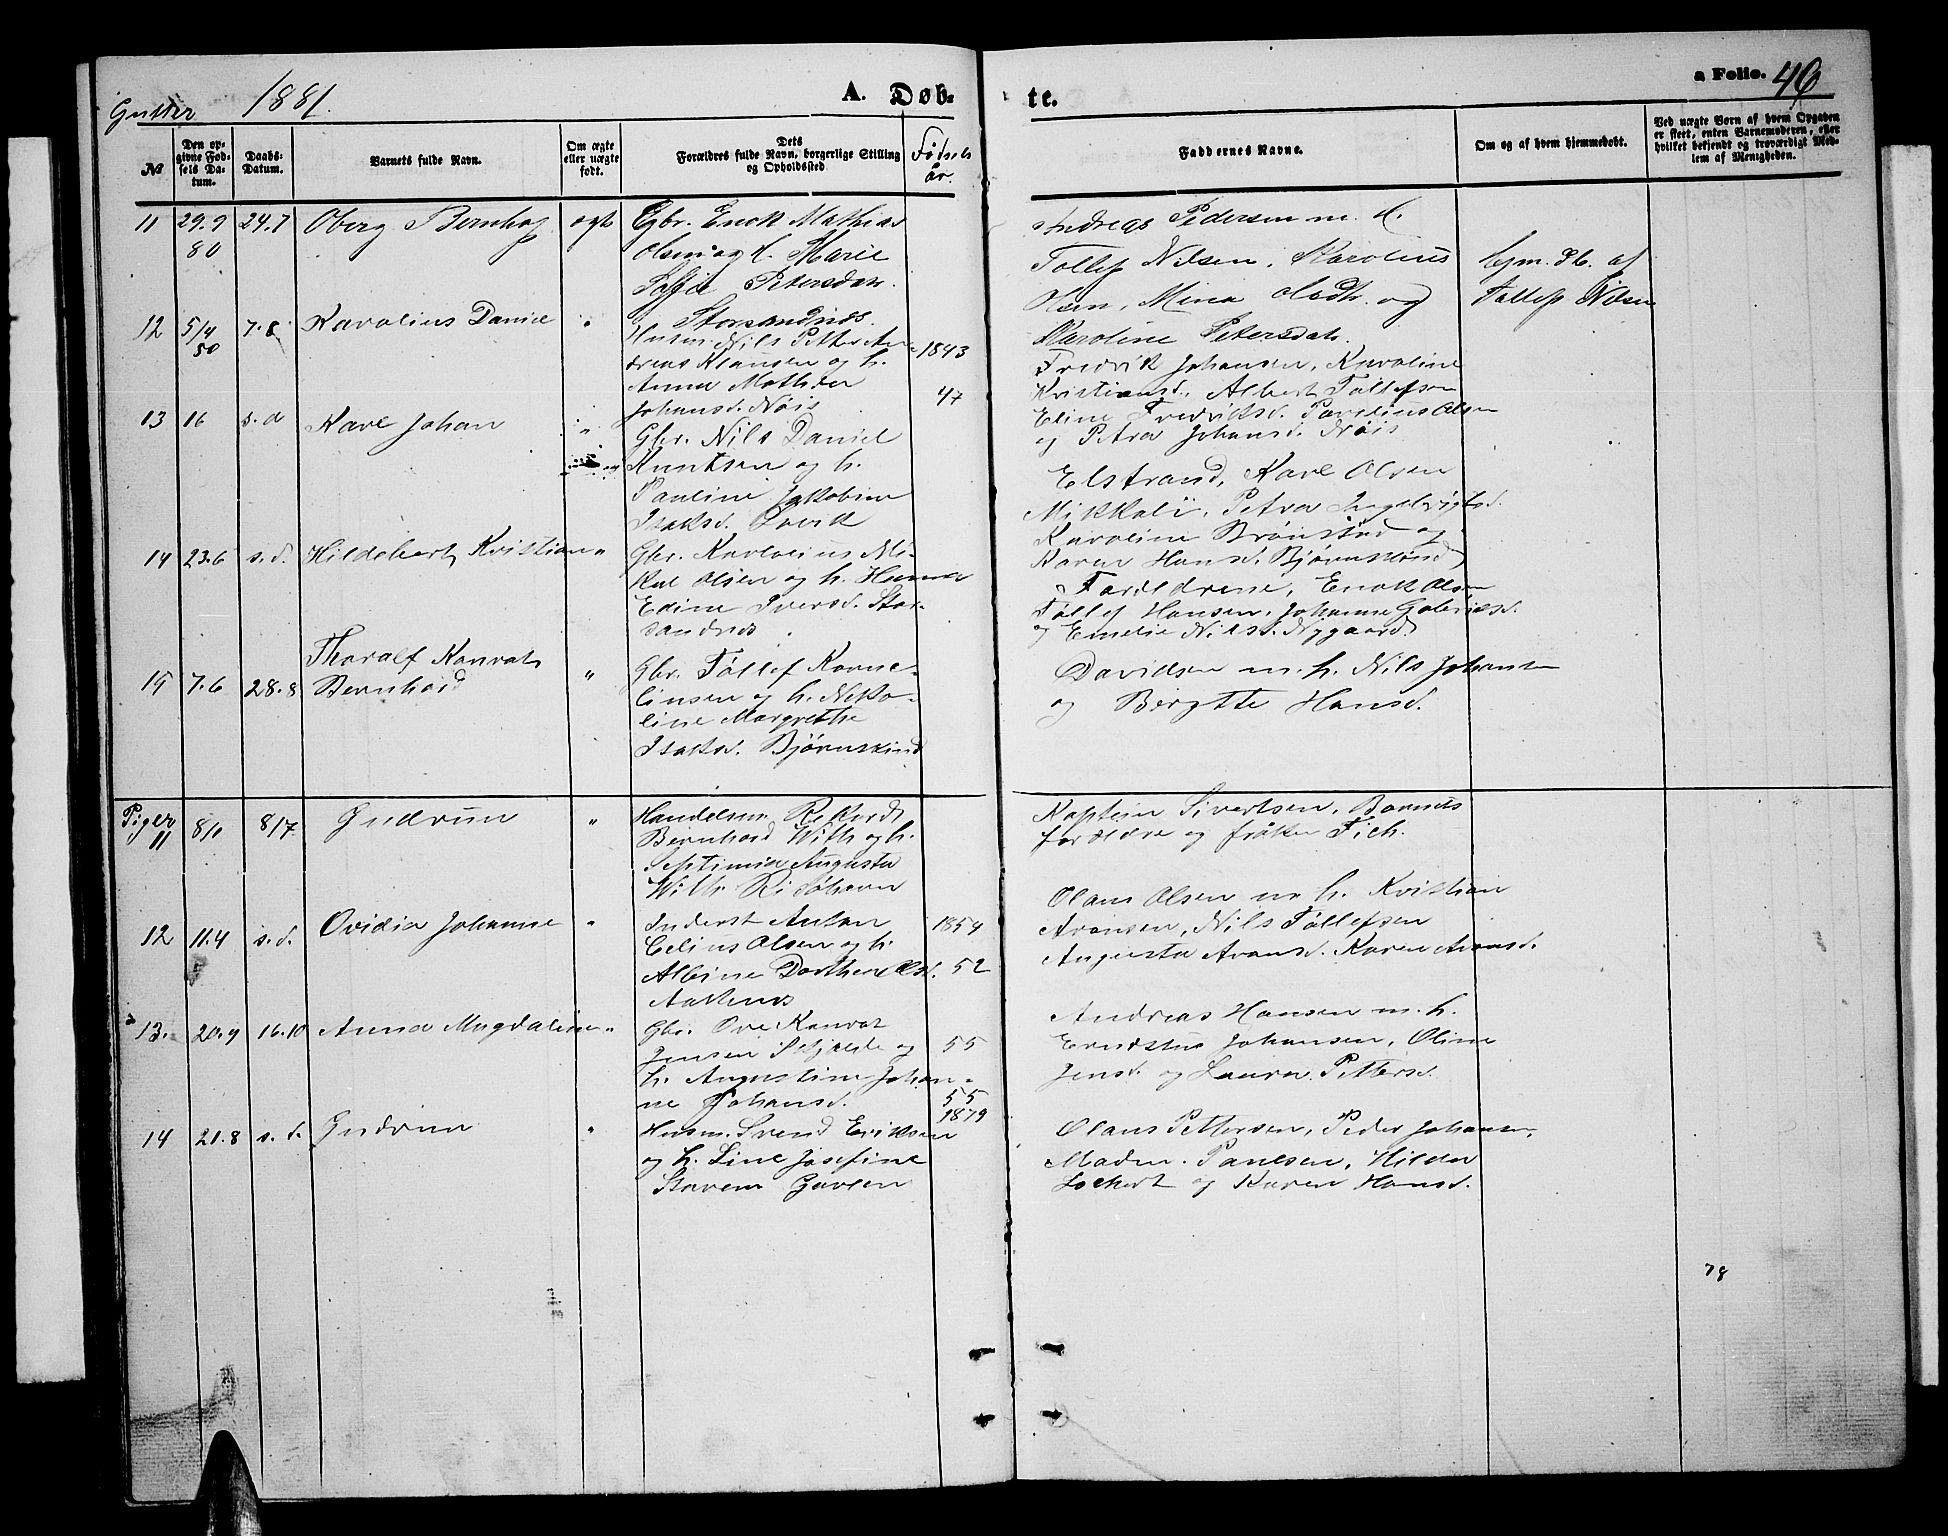 Gutter 1881.
A. Døb-
te.
a Folio. 46
№
Den op-
givne Fød-
sels Da-
tum.
Daabs-
Datum.
Barnets fulde Navn.
Om ægte
eller uægte
født.
Dets
Forældres fulde Navn, borgerlige Stilling
og Opholdssted
Fødsels
år.
Faddernes Navne.
Om og af hvem hjemmedøbt.
Ved uægte Børn af hvem Opgaven
er skeet, enten Barnemoderen, eller
hvilket bekjendt og troværdigt Med-
lem af Menigheden.
11 29.9 80 24.7 Oberg Bernhof ægte
Gbr. Enok Mathias
Olsen og h. Marie
Sofie Petersdatr.
Storsandnes
Andreas Pedersen m. h.
Tollef Nilsen, Karolius
Olsen, Mina Olsdtr. og
Karoline Petersdatr.
hjm. db. af
Tollef Nilsen
12 5/4 80 7.8 Karolius Daniel "
Husm. Nils Petter An-
dreas Klausen og h.
Anna Mathea
Johansd. Nöis
1843
47
Fredrik Johansen, Karoline
Kristiansd., Albert Tollefsen
Eline Fredriksd. Paulius Olsen
og Petra Johansd. Nöis
13 16 s. d Karl Johan "
Gbr. Nils Daniel
Knutsen og h.
Pauline Jakobine
Isaksd. Lovik
Elstrand, Karl Olsen
Mikkali, Petra Ingebrigtsd.
Karoline Brönstad og
Karen Hansd. Bjørnskind
14 23.6 s. d. Hildebert Kristian "
Gbr. Karolius Mi-
kal Olsen og h. Hanna
Edine Iversd. Stor-
sandnes
Forældrene, Enok Olsen
Tollef Hansen, Johanne Gabrielsd.
og Emelie Nilsd. Nygaard
15 7.6 28.8 Thoralf Konrad
Bernhard "
Gbr. Tollef Korne-
liusen og h. Niko-
line Margrethe
Isaksd. Bjørnskind
Davidsen m. h. Nils Johansen
og Birgtte Hansd.
Piger
11 8/1 8/7 Gudrun "
Handelsm. Rikard
Bernhard With og h.
Septimia Augusta
With Risöhavn
Kaptein Sivertsen, Barnets
forældre og fröken Fich.
12 11.4 s. d. Ovidia Johanne "
Inderst Anton
Celius Olsen og h.
Albine Dorthea Olsd.
1854
52
Olaus Olsen m h. Kristian
Aronsen, Nils Tollefsen
Augusta Aronsd. Karen Aronsd.
13. 20.9 16.10 Anna Magdalena "
Gbr. Ove Konrat
Jensen og
h. Augustine Johan-
ne Johansd.
55
55
Andreas Hansen m. h.
Erndstus Johansen, Oline
Jensd. og Laura Pettersd.
14 21.8 s. d. Gudrun "
Husm. Svend Eriksen
og h. Line Josefine
1879
Olaus Pettersen, Peder Johansen,
Madm. Paulsen, Hilda
Lockert og Karen Hansd.
78